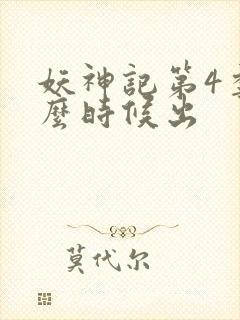 妖神記第4季什
麼時候出
莫代尔